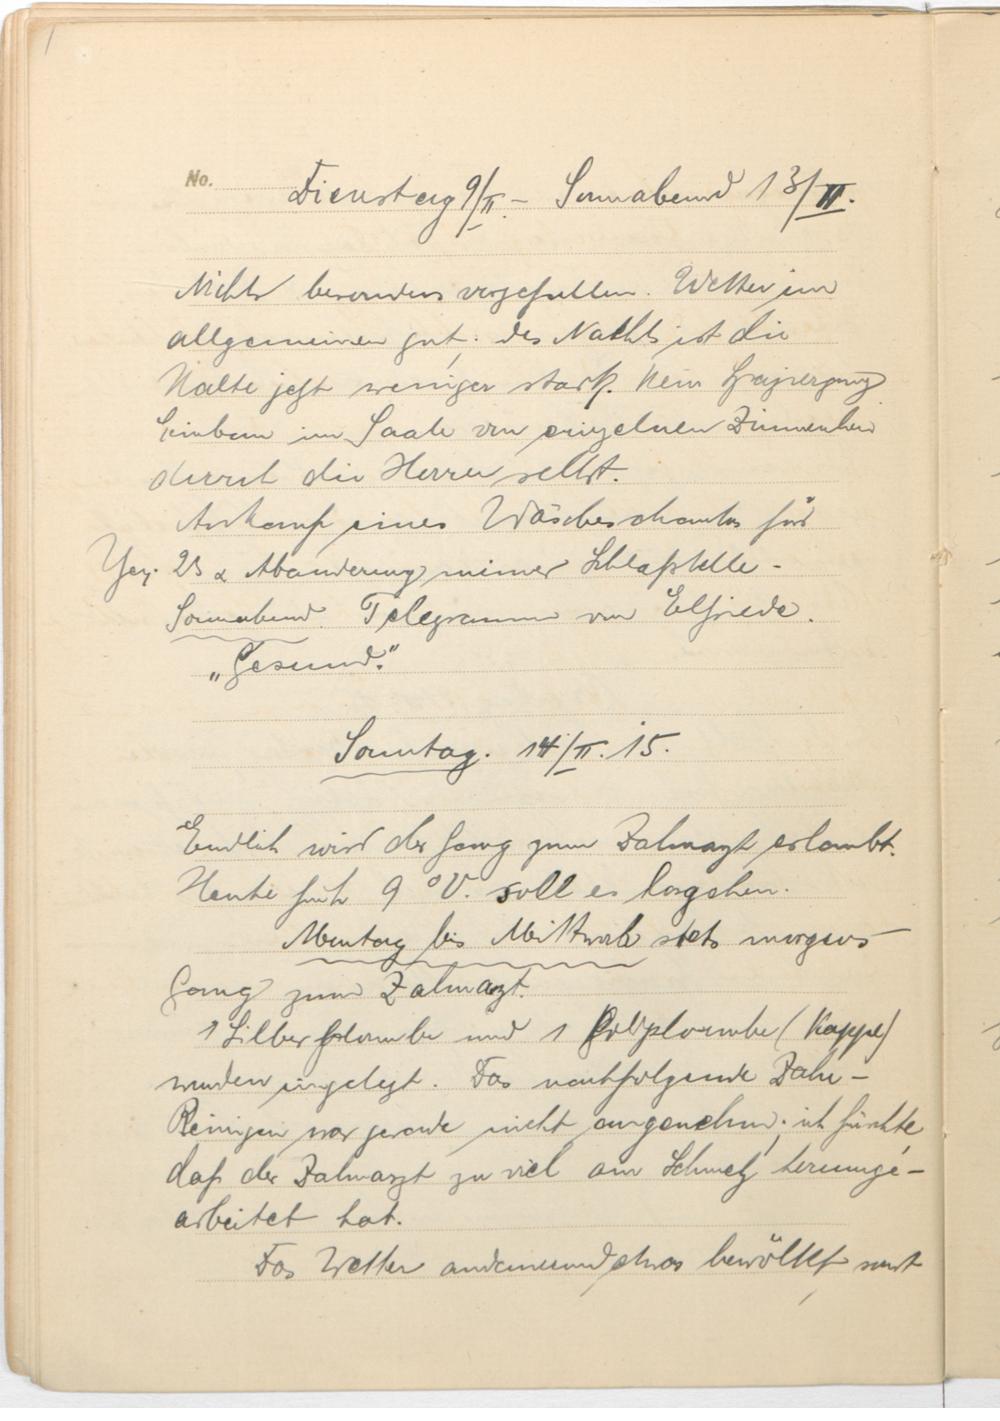 No. Dienstag 9/II. – Sonnabend 13/II.
Nichts besonders vorgefallen. Wetter im
allgemeinen gut; des Nachts ist die
Kälte jetzt weniger stark. Kein
im Saale von einzelnen Zimmern
durch die Herren selbst.
Ankauf eines Wäscheschranks für
Yen. 23 & Abänderung meiner Schlafstelle –
Sonnabend. Telegramm von Elfriede.
„Gesund.“
Sonntag. 14/II. 15.
Endlich wird der Gang zum Zahnarzt erlaubt.
Heute früh 9 °V. soll es losgehen.
Montag bis Mittwoch stets morgens
Gang zum Zahnarzt.
1 Silberplombe und 1 Goldplombe (Kappe)
wurden eingelegt. Das nachfolgende Zahn-
Reinigen war gerade nicht angenehm; ich fürchte
daß der Zahnarzt zu viel am Schmelz herumge-
arbeitet hat.
Das Wetter andauernd etwas bewölkt,